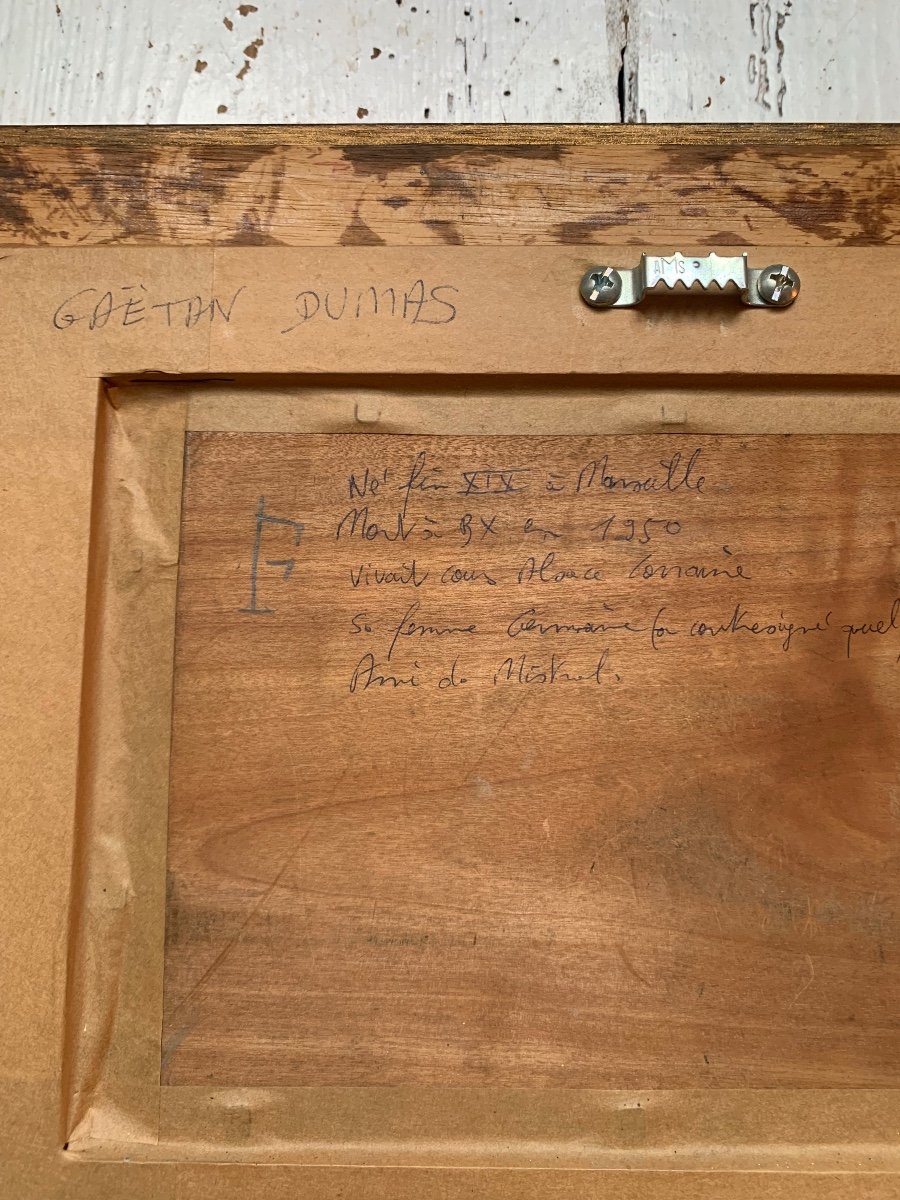 GAËTAN DUMAS
AMS
F
Né fin XIX à Marseille
Mort à BX en 1950
vivait cours Alsace Lorraine
Sa femme Germaine a contresigné quel
Ami de Mistral.